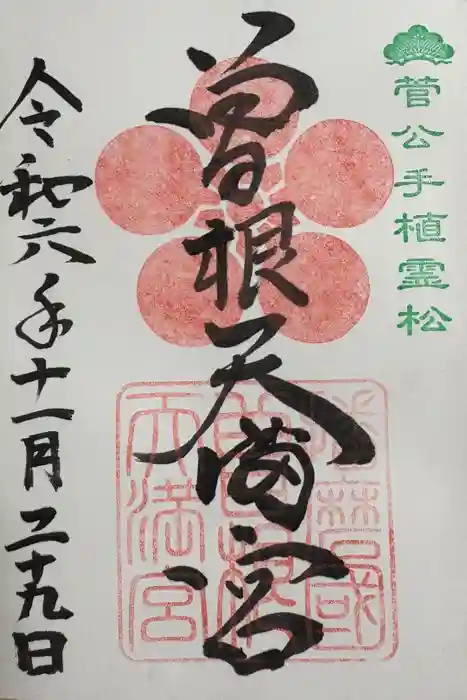 菅公手植霊松
曽根天満宮
令和六年十一月二十九日
播磨國
曽根
天満宮